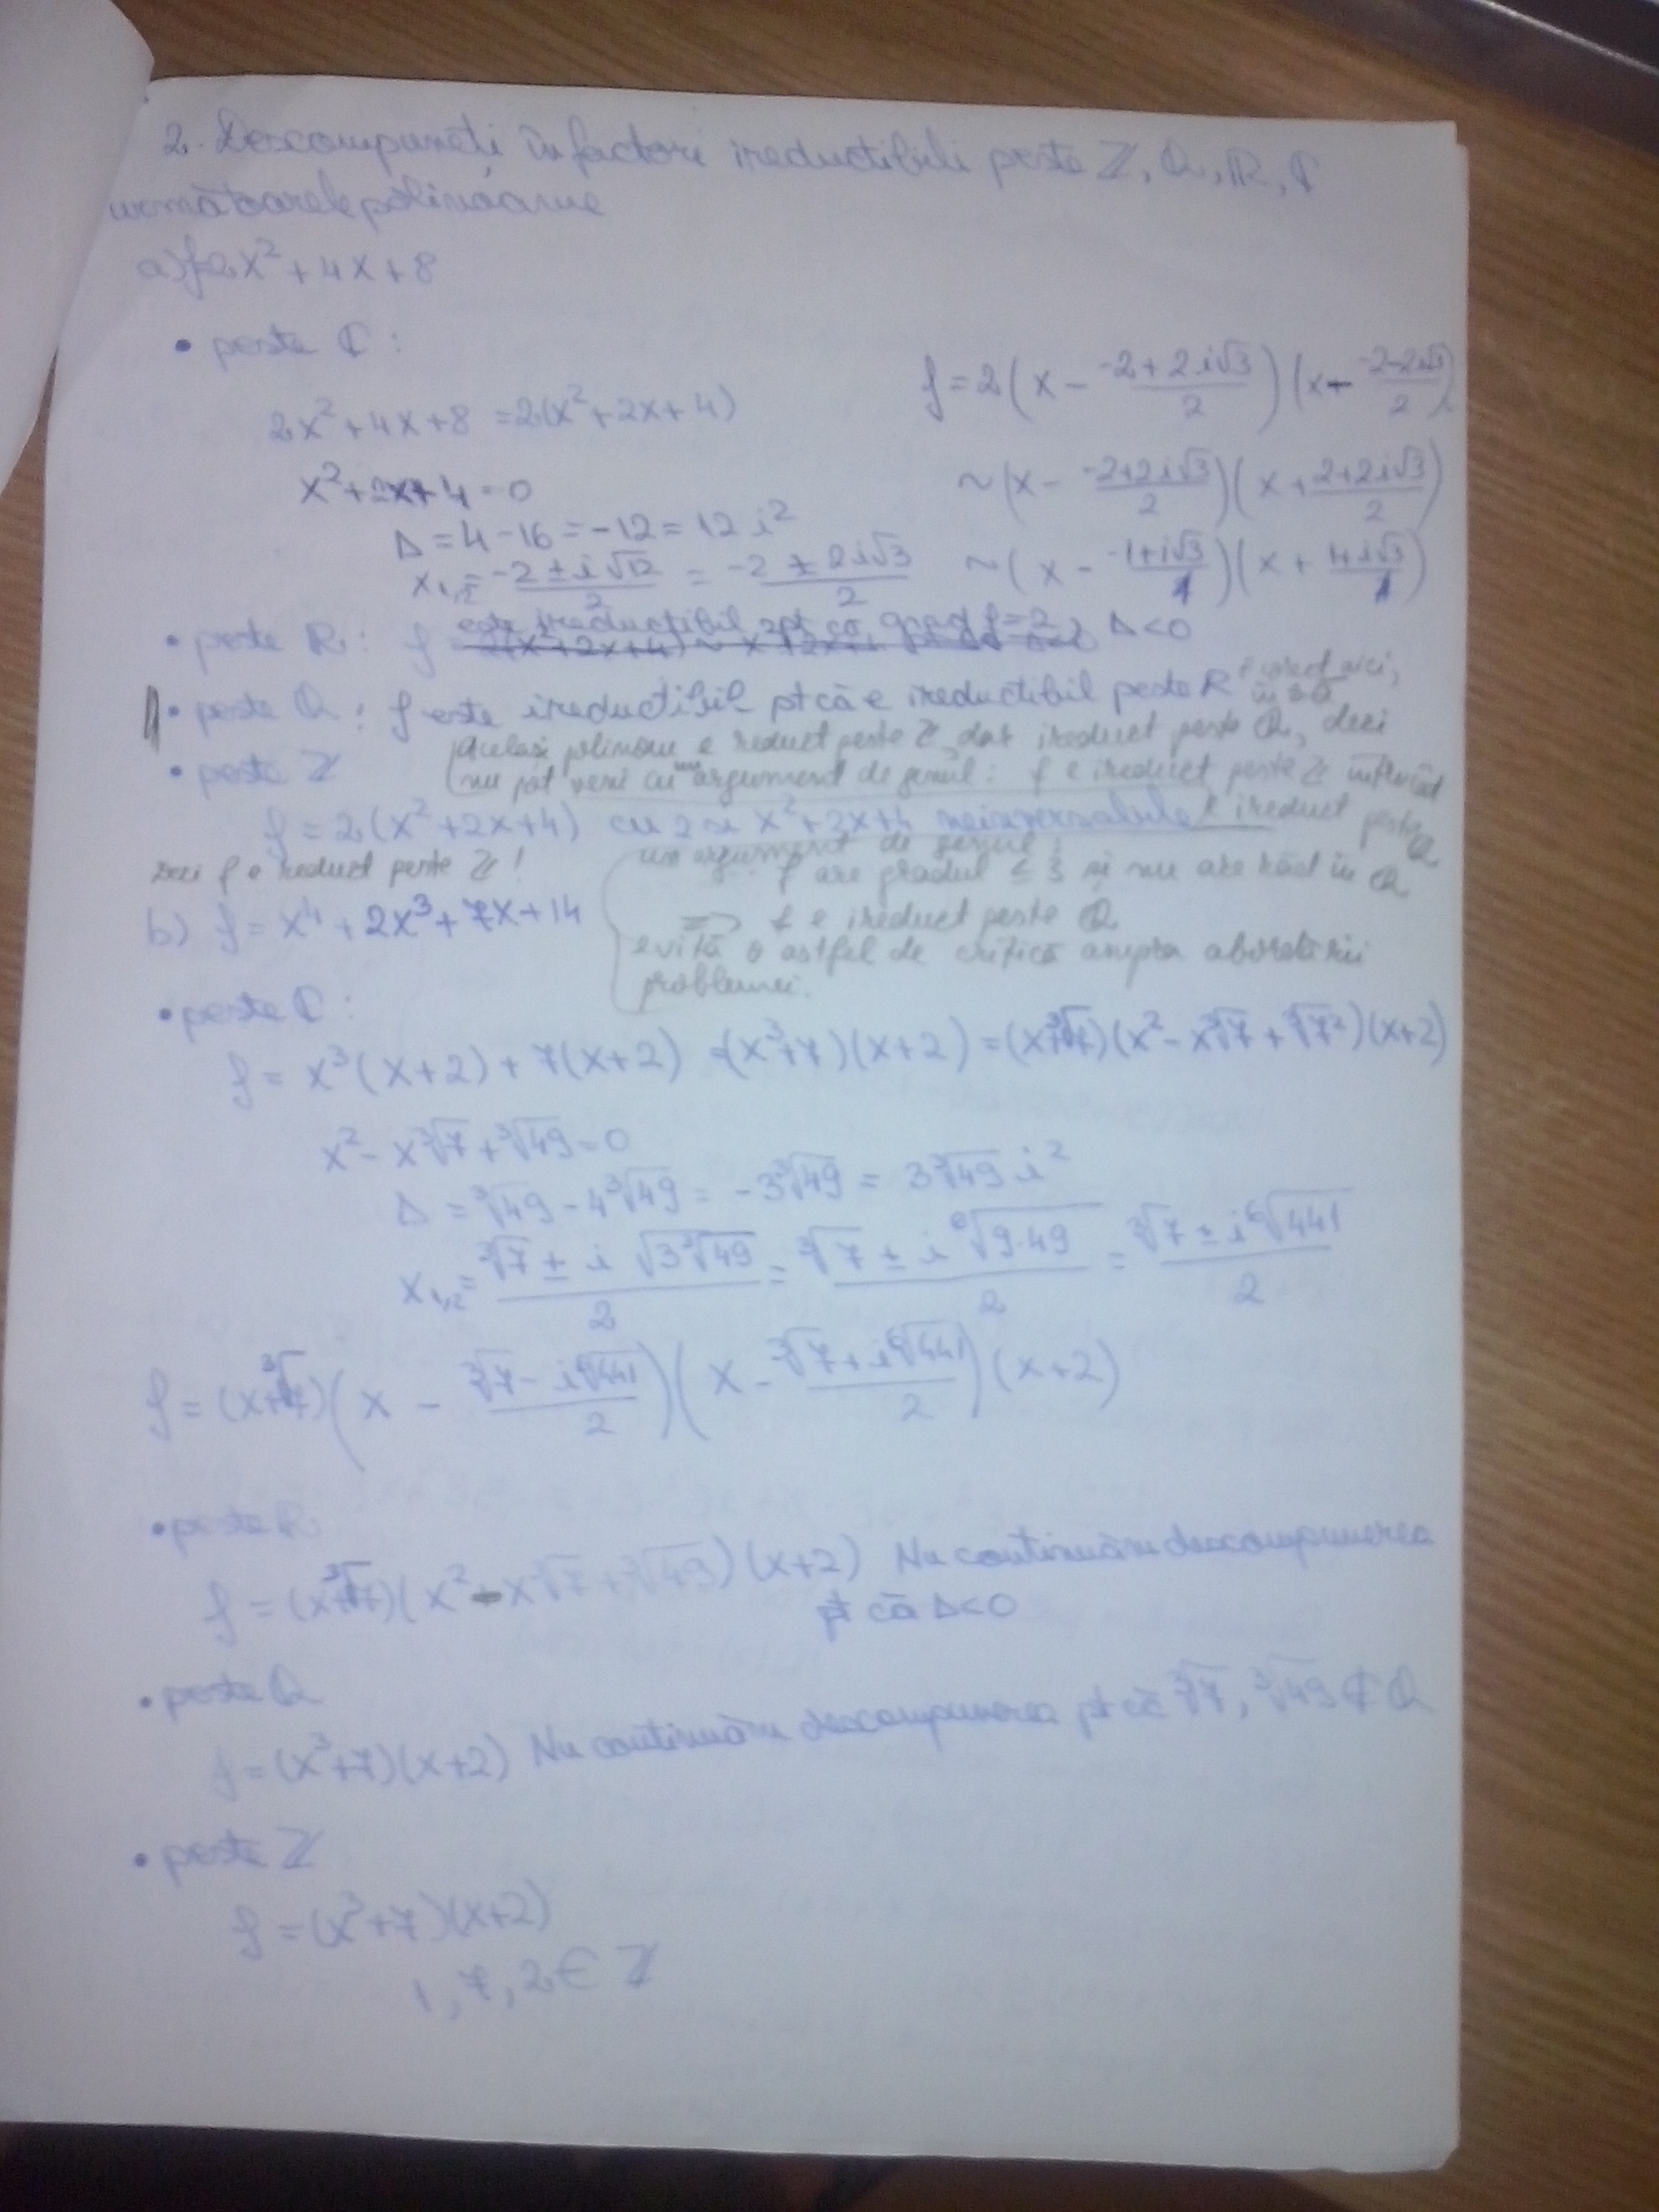 2. Descompuneți în factori ireductibili peste ℤ, ℚ, ℝ, ℂ
următoarele polinoame
a) f=2x² + 4x + 8
• peste ℂ:
2x² + 4x + 8 = 2(x² + 2x + 4)
x² + 2x + 4 = 0
Δ = 4 - 16 = -12 = 12 i²
x₁,₂ = (-2 ± i√12)/2 = (-2 ± 2i√3)/2
f = 2(x - (-2 + 2i√3)/2)(x - (-2-2i√3)/2)
~ (x - (-2+2i√3)/2)(x + (2+2i√3)/2)
~ (x - (-1+i√3)/1)(x + (1+i√3)/1)
• peste ℝ: f este ireductibil pt că grad f = 2, Δ < 0
• peste ℚ: f este ireductibil pt că e ireductibil peste ℝ
Același polinom e reduct peste ℤ, dar ireduct peste ℚ, deci
nu pot veni cu un argument de genul: f e ireduct peste ℤ întrucât
e ireduct peste ℚ
• peste ℤ
f = 2(x² + 2x + 4) cu 2 și x² + 2x + 4 neinversabile
Deci f e reduct peste ℤ!
un argument de genul:
f are gradul ≤ 3 și nu are răd în ℚ
⇒ f e ireduct peste ℚ
evită o astfel de critică asupra abordării
problemei.
b) f = x⁴ + 2x³ + 7x + 14
• peste ℂ:
f = x³(x+2) + 7(x+2) = (x³+7)(x+2) = (x+∛7)(x² - x∛7 + ∛7²)(x+2)
x² - x∛7 + ∛49 = 0
Δ = ∛49 - 4∛49 = -3∛49 = 3∛49 i²
x₁,₂ = (∛7 ± i √(3∛49))/2 = (∛7 ± i ⁶√(9·49))/2 = (∛7 ± i ⁶√441)/2
f = (x+∛7)(x - (∛7 - i⁶√441)/2)(x - (∛7 + i⁶√441)/2)(x+2)
• peste ℝ
f = (x+∛7)(x² - x∛7 + ∛49)(x+2) Nu continuăm descompunerea
pt că Δ<0
• peste ℚ
f = (x³+7)(x+2) Nu continuăm descompunerea pt că ∛7, ∛49 ∉ ℚ
• peste ℤ
f = (x³+7)(x+2)
1, 7, 2 ∈ ℤ